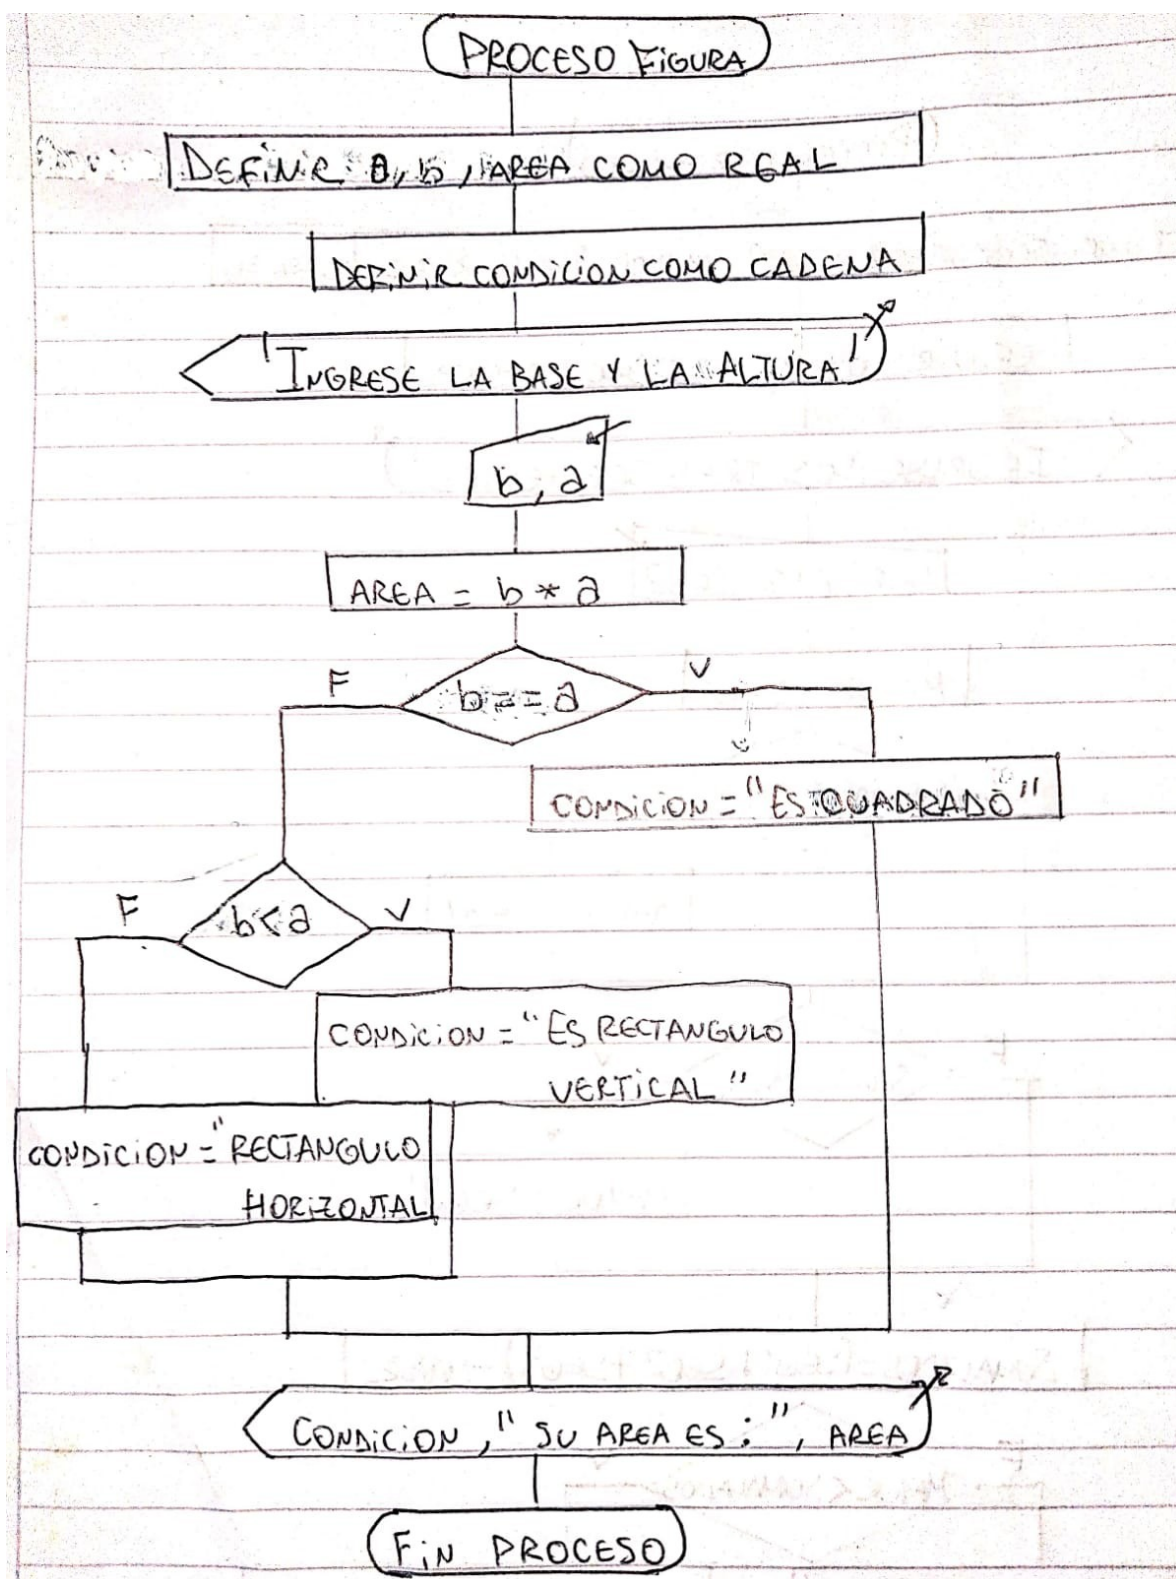 PROCESO FIGURA
DEFINIR a, b, AREA COMO REAL
DEFINIR CONDICION COMO CADENA
'INGRESE LA BASE Y LA ALTURA'
b, a
AREA = b * a
F
b == a
V
CONDICION = "ES CUADRADO"
F
b < a
V
CONDICION = "ES RECTANGULO
VERTICAL"
CONDICION = "RECTANGULO
HORIZONTAL
CONDICION, "SU AREA ES:", AREA
FIN PROCESO